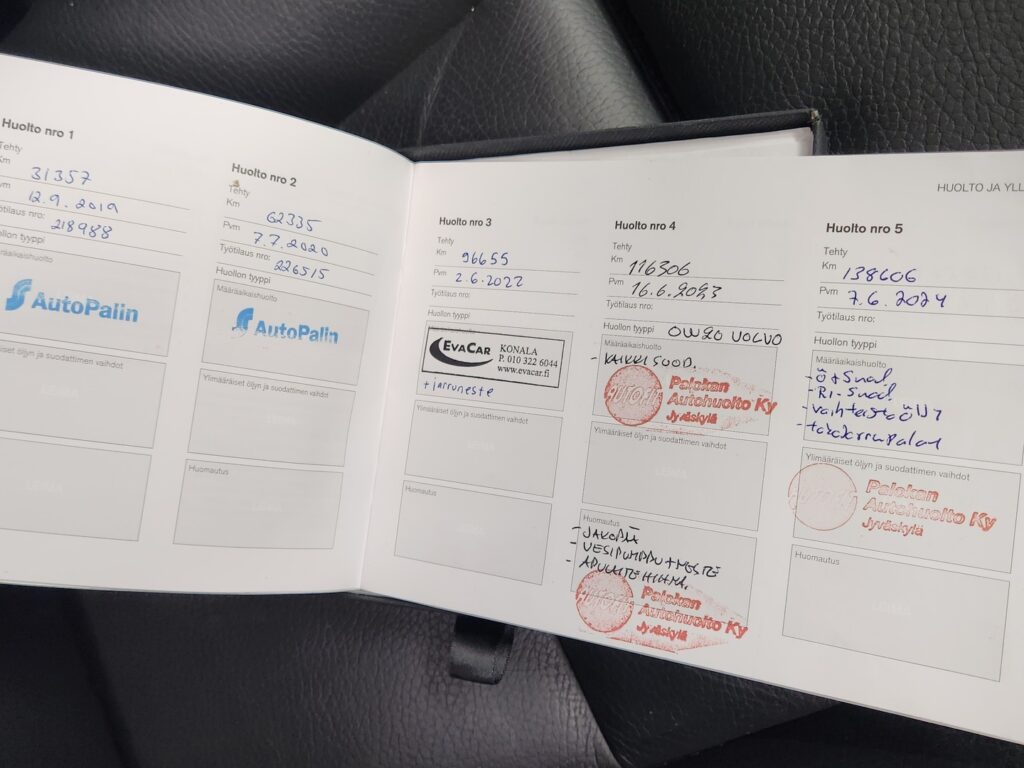 Huolto nro 1
Tehty
Km 31357
Pvm 12.9.2019
Työtilaus nro: 218988
Huollon tyyppi
Määräaikaishuolto
AutoPalin
Ylimääräiset öljyn ja suodattimen vaihdot
LEIMA
LEIMA
Huolto nro 2
Tehty
Km 62335
Pvm 7.7.2020
Työtilaus nro: 226515
Huollon tyyppi
Määräaikaishuolto
AutoPalin
Ylimääräiset öljyn ja suodattimen vaihdot
Huomautus
Huolto nro 3
Tehty
Km 96655
Pvm 2.6.2022
Työtilaus nro:
Huollon tyyppi
EVACAR KONALA
P. 010 322 6044
www.evacar.fi
+ jarruneste
Ylimääräiset öljyn ja suodattimen vaihdot
LEIMA
Huomautus
Huolto nro 4
Tehty
Km 116306
Pvm 16.6.2023
Työtilaus nro:
Huollon tyyppi 0W20 VOLVO
Määräaikaishuolto
- KAIKKI SUOD.
Palokan
Autohuolto Ky
Jyväskylä
Ylimääräiset öljyn ja suodattimen vaihdot
LEIMA
Huomautus
- JAKOPÄÄ
- VESIPUMPPU + NESTE
- APULAITEHIHNA
Palokan
Autohuolto Ky
Jyväskylä
HUOLTO JA YLL
Huolto nro 5
Tehty
Km 138606
Pvm 7.6.2024
Työtilaus nro:
Huollon tyyppi
Määräaikaishuolto
- Ö + Suod
- RI-Suod.
- vaihteistoÖljy
- takajarrupalat
Ylimääräiset öljyn ja suodattimen vaihdot
Palokan
Autohuolto Ky
Jyväskylä
Huomautus
LEIMA